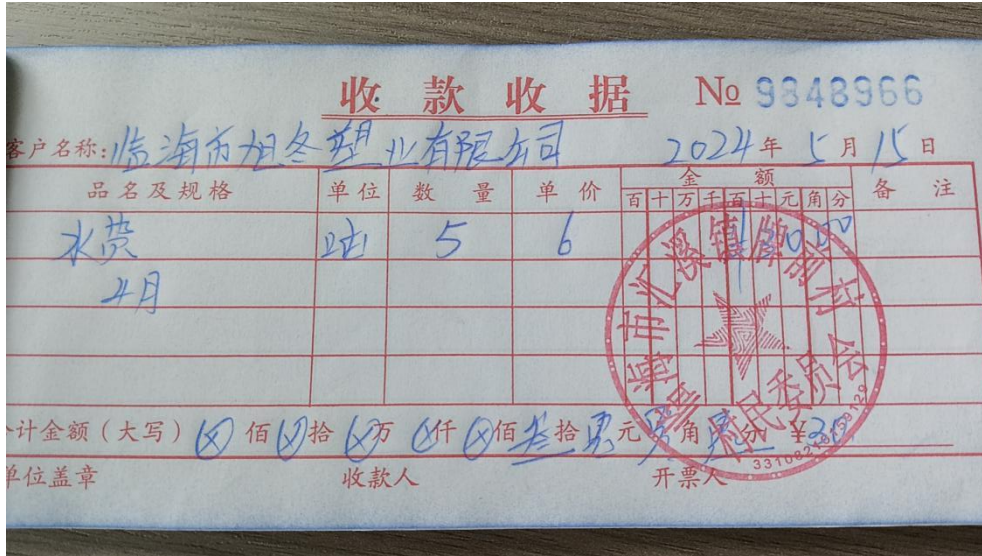 收款收据 № 9848966
客户名称:临海市旭冬塑业有限公司 2024年5月15日
品名及规格 单位 数量 单价 金额 备注
百十万千百十元角分
水费 吨 5 6 ¥3000
4月
计金额(大写)⊗佰⊗拾⊗万⊗仟⊗佰叁拾零元零角零分 ¥30
单位盖章 收款人 开票人
临海市汇溪镇 前村村民委员会